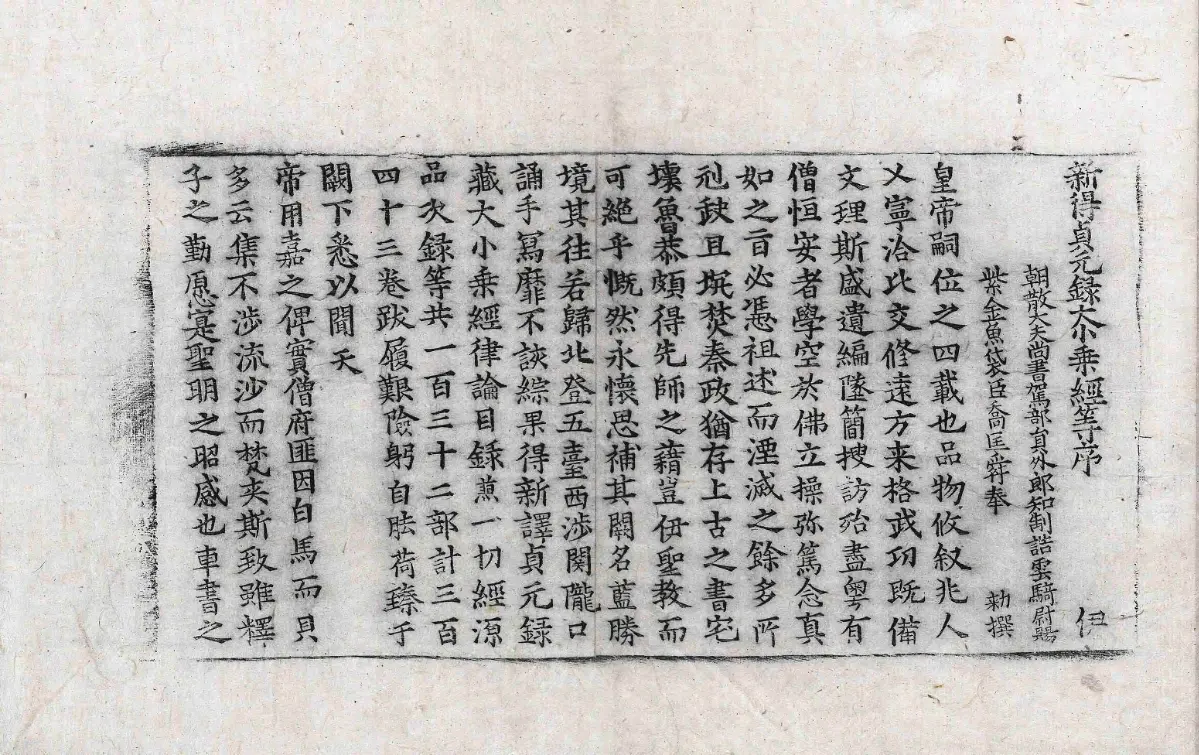 新得貞元錄大小乘經等序 伊
朝散大夫尚書駕部負外郎知制誥雲騎尉賜
紫金魚袋臣喬匡舜奉 勑撰
皇帝嗣位之四載也品物攸叙兆人
乂寧洽比交修逺方来格武㓛既備
文理斯盛遺編墜簡搜訪殆盡粤有
僧恒安者學空於佛立操弥篤念真
如之旨必憑祖述而湮滅之餘多所
刓缺且坑焚秦政猶存上古之書宅
壊魯恭頗得先師之藉豈伊聖教而
可絶乎慨然永懷思補其闕名藍勝
境其往若歸北登五臺西涉関隴口
誦手冩靡不詼綜果得新譯貞元録
藏大小乘經律論目録煎一切經源
品次録等共一百三十二部計三百
四十三卷跋履艱險躬自胠荷臻于
闕下悉以聞天
帝用嘉之俾實僧府匪因白馬而貝
多云集不涉流沙而梵夾斯致雖釋
子之勤愿寔聖明之昭感也車書之